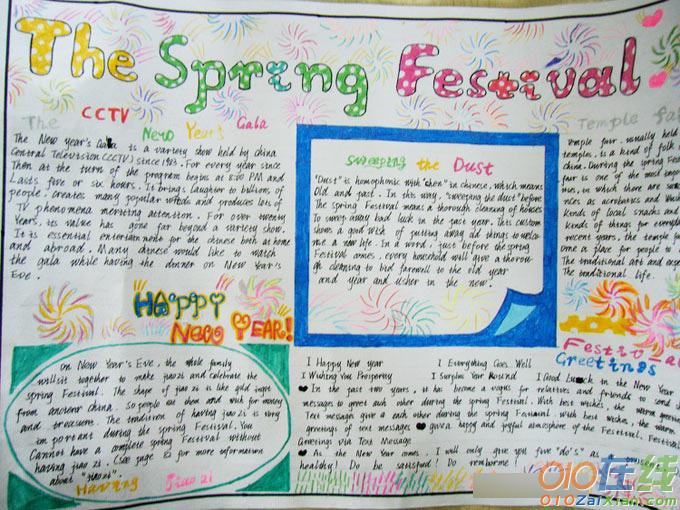 The Spring Festival
The CCTV
New Year's Gala
The New year's Gala is a variety show held by china
Central Television (CCTV) since 1983. For every year since
Then at the turn of the program begins at 8:00 PM and
Lasts five or six hours. It brings laughter to billions of
people, creates many popular words and produces lots of
TV phenomena meriting attention. For over twenty
Years, its value has gone far beyond a variety show.
It is essential entertainment for the chinese both at home
and abroad. Many chinese would like to watch
the gala while having the dinner on New Year's
Eve.
HAPPY
NEW YEAR!
On New Year's Eve, the whole family
will sit together to make jiaozi and celebrate the
spring Festival. The shape of jiao zi is like gold ingot
from ancient china. So people eat them and wish for money
and treasure. The tradition of having jiao zi is very
important during the spring Festival. You
Cannot have a complete spring Festival without
having jiao zi. (see page 21 for more information
about "jiaozi".
Having Jiao zi
sweeping the Dust
"Dust" is homophonic with "chen" in chinese, which means
Old and past. In this way, "sweeping the dust" before
The spring Festival means a thorough cleaning of houses
To sweep away bad luck in the past year. This custom
shows a good wish of putting away old things to welcome
me a new life. In a word, just before the spring
Festival comes, every household will give a thorough
gh cleaning to bid farewell to the old year
and year and usher in the new.
Temple fai
Temple fair, usually held
temples, is a kind of folk
china. During the spring Fes
fair is one of the most impor
ies, in which there are such
ces as acrobatics and Wushu
kinds of local snacks and
kinds of things for everyday
recent years, the temple fai
ome a place for people to
The traditional art and ex
The traditional life.
Festival
Greetings
I Happy New year
I Everything Goes Well
I Wishing You Prosperity
I Surplus Year Round
I Good Luck in the New Year
In the past two years, it has become a vogue for relatives and friends to send
messages to greet each other during the spring Festival. With best wishes, the warm greetin
Text messages give a each other during the spring Festival. With best wishes, the warm
greetings of text messages given a happy and joyful atmosphere of the Festival. Festival
Greetings via Text Message
As the New year comes, I will only give you five "do's" as
healthy! Do be satisfied! Do remember!
010在线
010ZaiXian.Com